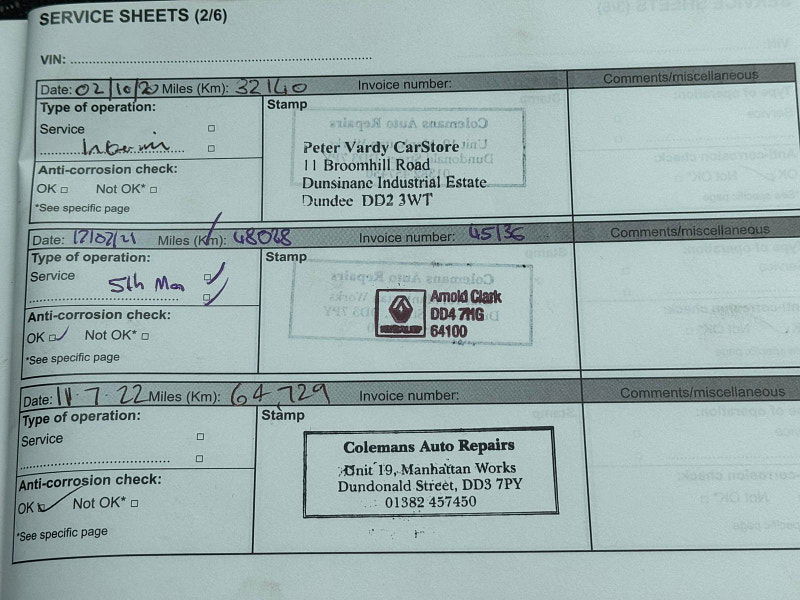 SERVICE SHEETS (2/6)
VIN:
Date: 02/10/20 Miles (Km): 32140 Invoice number: Comments/miscellaneous
Type of operation: Stamp
Service
Interim
Anti-corrosion check:
OK Not OK*
*See specific page
Peter Vardy CarStore
11 Broomhill Road
Dunsinane Industrial Estate
Dundee DD2 3WT
Date: 17/07/21 Miles (Km): 48028 Invoice number: 45136 Comments/miscellaneous
Type of operation: Stamp
Service 5th Man
Anti-corrosion check:
OK Not OK*
*See specific page
Arnold Clark
DD4 7MG
64100
Date: 11.7.22 Miles (Km): 64,729 Invoice number: Comments/miscellaneous
Type of operation: Stamp
Service
Anti-corrosion check:
OK Not OK*
*See specific page
Colemans Auto Repairs
Unit 19, Manhattan Works
Dundonald Street, DD3 7PY
01382 457450